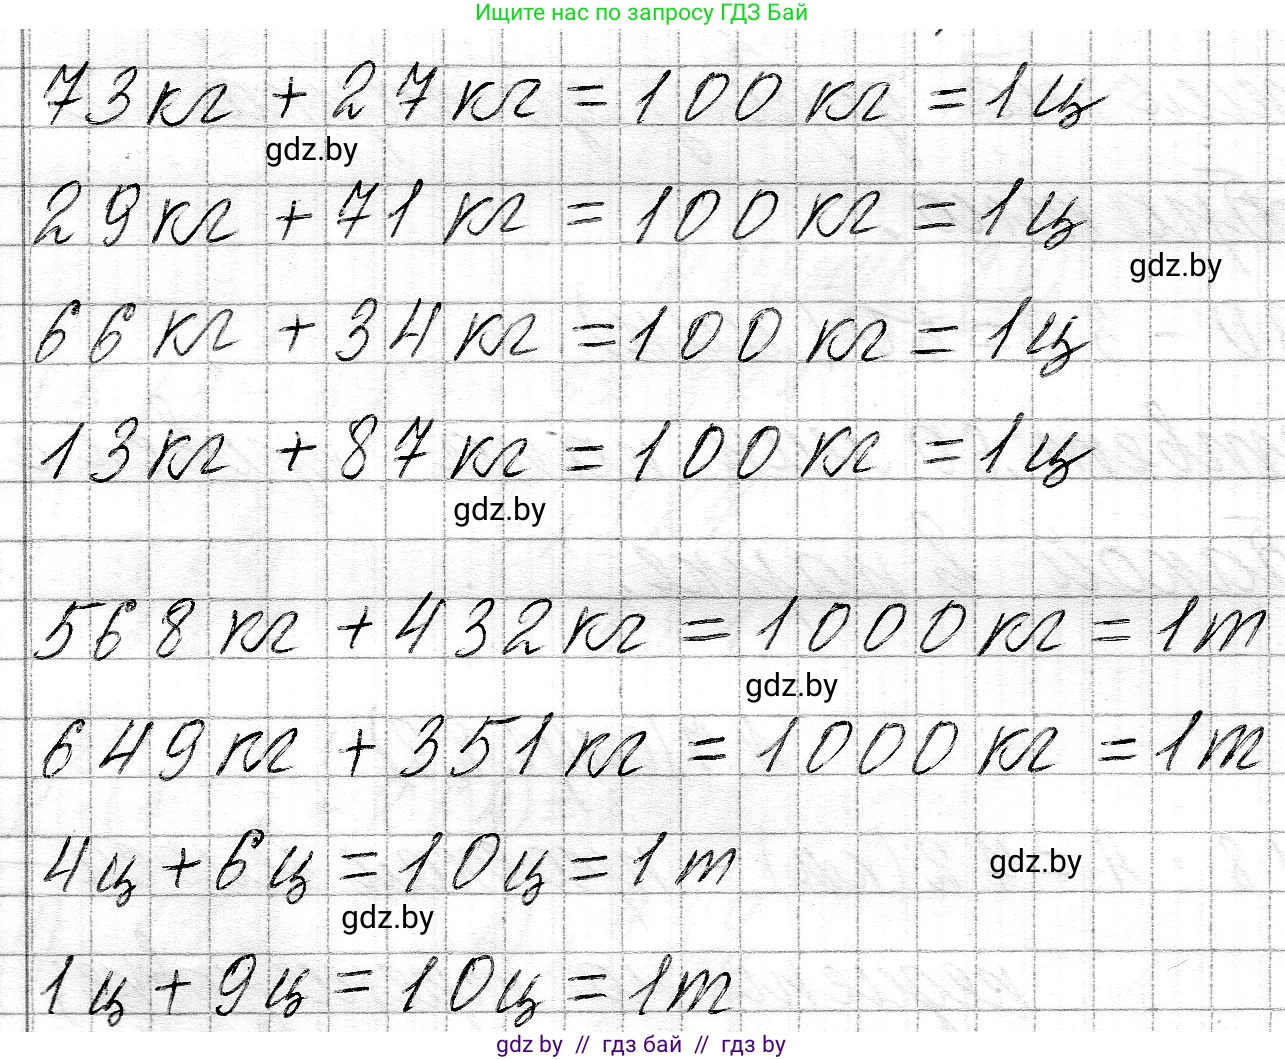 Ищите нас по запросу ГДЗ Бай
73 кг + 27 кг = 100 кг = 1 ц
gdz.by
29 кг + 71 кг = 100 кг = 1 ц
gdz.by
66 кг + 34 кг = 100 кг = 1 ц
13 кг + 87 кг = 100 кг = 1 ц
gdz.by
568 кг + 432 кг = 1000 кг = 1 т
gdz.by
649 кг + 351 кг = 1000 кг = 1 т
4 ц + 6 ц = 10 ц = 1 т
gdz.by
gdz.by
1 ц + 9 ц = 10 ц = 1 т
gdz by // гдз бай // гдз by